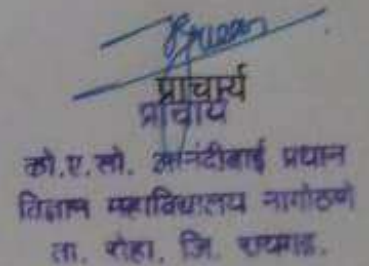 प्राचार्य
प्राचार्य
को.ए.सो. आनंदीबाई प्रधान
विज्ञान महाविद्यालय नागोठणे
ता. रोहा, जि. रायगड.